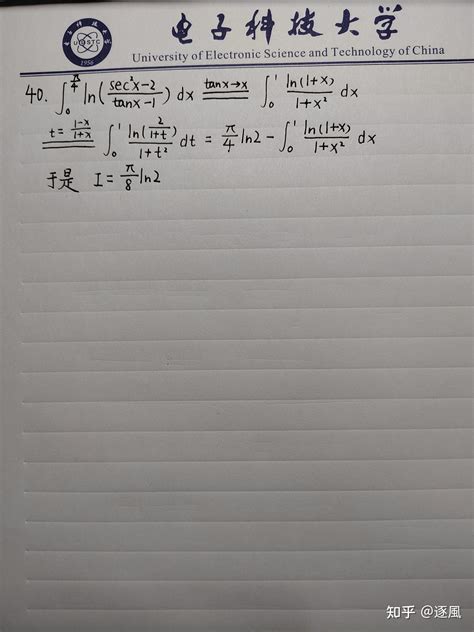 电子科技大学
University of Electronic Science and Technology of China
UESTC
1956
40. ∫₀^(π/4) ln((sec²x-2)/(tanx-1)) dx =(tanx→x)= ∫₀¹ ln(1+x)/(1+x²) dx
=(t=(1-x)/(1+x))= ∫₀¹ ln(2/(1+t))/(1+t²) dt = π/4 ln2 - ∫₀¹ ln(1+x)/(1+x²) dx
于是 I = π/8 ln2
知乎 @逐風